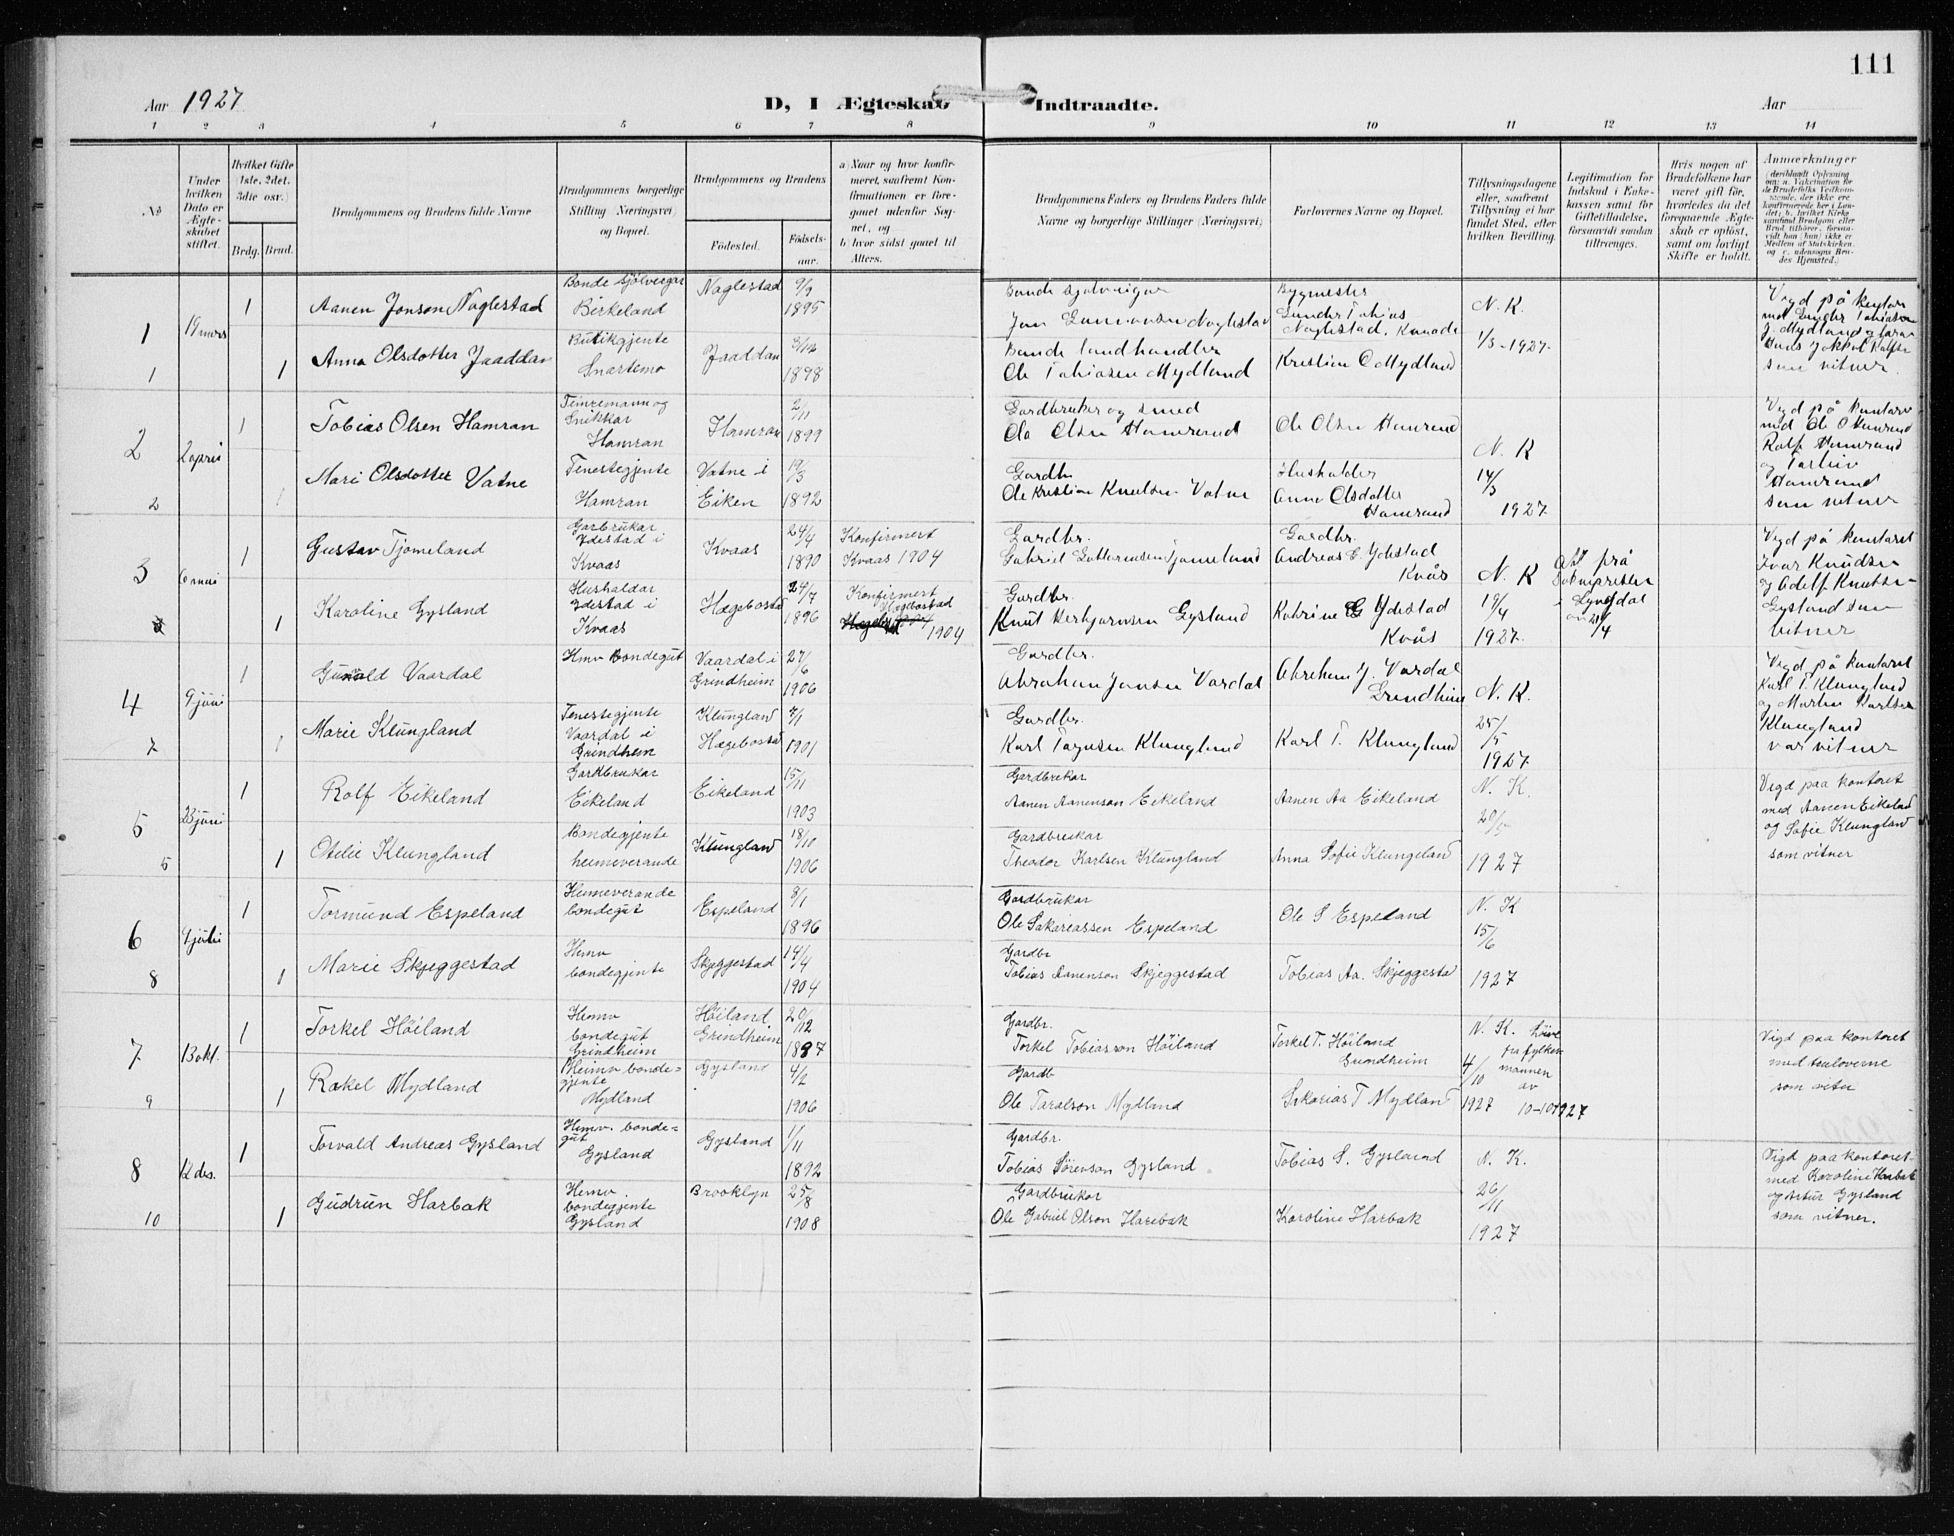 111
Aar 1927 D, I Ægteskab Indtraadte. Aar
1 2 3 4 5 6 7 8 9 10 11 12 13 14
No
Under hvilken Dato er Ægteskabet stiftet.
Hvilket Gifte (1ste, 2det, 3die osv.)
Brdg. Brud.
Brudgommens og Brudens fulde Navne
Brudgommens borgerlige Stilling (Næringsvei) og Bopæl.
Brudgommens og Brudens
Fødested. Fødselsaar.
a) Naar og hvor konfirmeret, saafremt Konfirmationen er foregaaet udenfor Sognet, og
b) hvor sidst gaaet til Alters.
Brudgommens Faders og Brudens Faders fulde Navne og borgerlige Stillinger (Næringsvei)
Forlovernes Navne og Bopæl.
Tillysningsdagene eller, saafremt Tillysning ei har fundet Sted, efter hvilken Bevilling.
Legitimation for Indskud i Enkekassen samt for Giftetilladelse, forsaavidt saadan tiltrænges.
Hvis nogen af Brudefolkene har været gift før, hvorledes da det foregaaende Ægteskab er opløst, samt om lovligt Skifte er holdt.
Anmærkninger
(deriblandt Oplysning om: a. Vakcination for de Brudefolks Vedkommende, der ikke ere konfirmerede her i Landet; b. hvilket Kirkesamfund Brudgom eller Brud tilhører, forsaavidt han (hun) ikke er Medlem af Statskirken, og c. udensogns Brudes Hjemsted.)
1 19 mars 1 Aanen Jonson Naglestad
Bonde sjølveigar Birkeland
Naglestad 9/9 1895
Bonde sjølveigar
Jon Naglestad
Bygmester
Gunder Tobias Naglestad, Knaode
N. K. 1/3-1927.
Vigd på kontoret med Gunder Tobiasen Mydland og
som vitner.
1 1 Anna Olsdotter Jaaddan
Butikgjente Snartemo
Jaaddan 3/12 1898
Bonde landhandler
Ole Tobiasen Mydland
Kristian O Mydland
2 2 april 1 Tobias Olsen Hamran
Temremann og Snikkar Hamran
Hamran 2/11 1899
Gardbruker og smed
Ola Olsen Hamrand
Ole Olsen Hamrand
N. K 14/3 1927.
Vigd på kontoret med Ole O Hamrand Rolf Hamrand og Torleiv Hamrand som vitner
2 1 Mari Olsdotter Vatne
Tenestegjente Hamran
Vatne i Eiken 19/3 1892
Gardbr
Ole Kristian Knutsen Vatne
Husholder
Anne Olsdotter Hamrand
3 6 mai 1 Gustav Tjomeland
Garbrukar Ydestad i Kvaas
Kvaas 24/4 1890
Konfirmert Kvaas 1904
Gardbr.
Gabriel Guttormsen Tjomeland
Gardbr.
Andreas G. Ydestad Kvås
N. K 19/4 1927.
Att frå Soknepresten i Lyngdal av 21/4
Vigd på kontoret Ivar Knudsen og Adolf Knutsen Gysland som vitner
3 1 Karoline Gysland
Hushaldar Ydestad i Kvaas
Hægebostad 24/7 1896
Konfirmert Hægebostad 1904
Gardbr.
Knut Herbjørnsen Gysland
Katrine G Ydestad Kvås
4 9 juni 1 Gunvald Vaardal
Hmv Bondegut
Vaardal i Grindheim 27/6 1906
Gardbr.
Abraham Jonsen Vardal
Abraham J. Vardal Grindheim
N. K. 25/5 1927.
Vigd på kontoret Karl T. Klungland og Martin Karlsen Klungland var vitner
7 1 Marie Klungland
Tenestegjente Vaardal i Grindheim
Klungland Hægebostad 7/1 1901
Gardbr.
Karl Tagnsen Klungland
Karl T. Klungland
5 23 juni 1 Rolf Eikeland
Gardbrukar Eikeland
Eikeland 15/11 1903
Gardbrekar
Aanen Aanenson Eikeland
Aanen Aa Eikeland
N. K. 20/5 1927
Vigd paa kontoret med Aanen Eikeland og Sofie Klungland som vitner
5 1 Otelie Klungland
Bondegjente heimeverande
Klungland 18/10 1906
Gardbrukar
Theodor Karlsen Klungland
Anna Sofie Klungeland
6 9 juli 1 Tormund Espeland
Heimeverande bondegut
Espeland 8/1 1896
Gardbrukar
Ole Sakariassen Espeland
Ole S Espeland
N. K 15/6 1927
8 1 Marie Skjeggestad
Hemv bondegjente
Skjeggestad 14/4 1904
Gardbr
Tobias Aanenson Skjeggestad
Tobias Aa. Skjeggesta
7 13 okt. 1 Torkel Høiland
Hemv bondegut Grindheim
Høiland Grindheim 20/12 1897
Gardbr.
Torkel Tobiasson Høiland
Torkel T. Høiland Grindheim
N. K. Løive fra fylkesmannen av 10-10 1927
4/10 1927
Vigd paa kontoret med forloverne som vitner
9 1 Rakel Mydland
Heimv bondegjente Mydland
Gysland 4/2 1906
Gardb
Ole Taralson Mydland
Sakarias T Mydland
8 12 des. 1 Torvald Andreas Gysland
Hemv. bondegut Gysland
Gysland 1/11 1892
Gardbr.
Tobias Sørenson Gysland
Tobias S. Gysland
N. K. 26/11 1927
Vigd paa kontoret med Karoline Harbak og Artur Gysland som vitner.
10 1 Gudrun Harbak
Hemv. bondegjente Gysland
Brooklyn 25/8 1908
Gardbrukar
Ole Gabriel Olson Harebak
Karoline Harbak